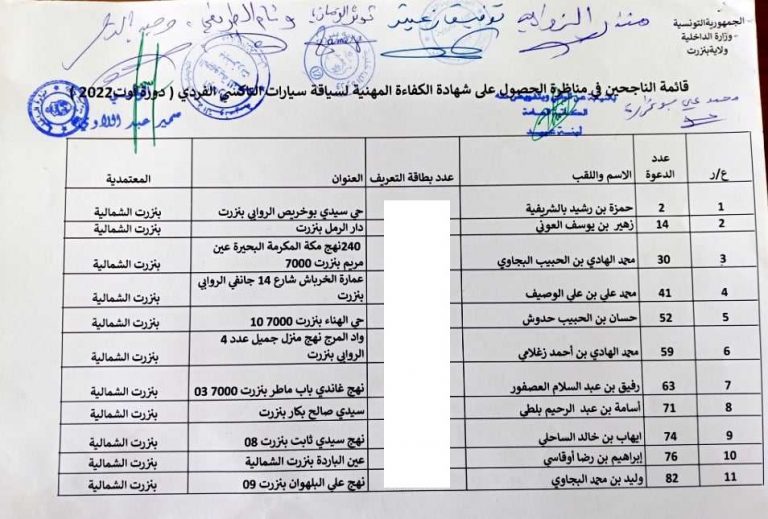 الجمهورية التونسية
وزارة الداخلية
ولاية بنزرت
منتصر الزواري توفيق زعيتر
محمد علي بوغزارة
سمير عبد اللاوي
قائمة الناجحين في مناظرة الحصول على شهادة الكفاءة المهنية لسياقة سيارات التاكسي الفردي ( دورة أوت 2022 )
ع/ر عدد الدعوة الاسم واللقب عدد بطاقة التعريف العنوان المعتمدية
1 2 حمزة بن رشيد بالشريفية حي سيدي بوخريص الروابي بنزرت بنزرت الشمالية
2 14 زهير بن يوسف العوني دار الرمل بنزرت بنزرت الشمالية
3 30 محمد الهادي بن الحبيب البجاوي 240نهج مكة المكرمة البحيرة عين مريم بنزرت 7000 بنزرت الشمالية
4 41 محمد علي بن علي الوصيف عمارة الخرباش شارع 14 جانفي الروابي بنزرت بنزرت الشمالية
5 52 حسان بن الحبيب حدوش حي الهناء بنزرت 7000 10 بنزرت الشمالية
6 59 محمد الهادي بن أحمد زغلامي واد المرج نهج منزل جميل عدد 4 الروابي بنزرت بنزرت الشمالية
7 63 رفيق بن عبد السلام العصفور نهج غاندي باب ماطر بنزرت 7000 03 بنزرت الشمالية
8 71 أسامة بن عبد الرحيم بلطي سيدي صالح بكار بنزرت بنزرت الشمالية
9 74 ايهاب بن خالد الساحلي نهج سيدي ثابت بنزرت 08 بنزرت الشمالية
10 76 إبراهيم بن رضا أوقاسي عين الباردة بنزرت الشمالية بنزرت الشمالية
11 82 وليد بن محمد البجاوي نهج علي البلهوان بنزرت 09 بنزرت الشمالية